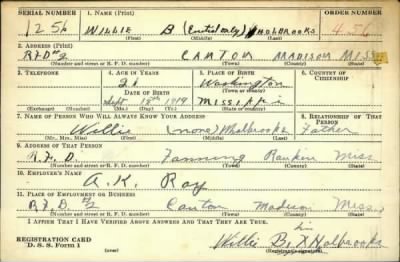 SERIAL NUMBER 1. NAME (Print) ORDER NUMBER
1256 WILLIE B (initial only) HOLBROOKS 456
(First) (Middle) (Last)
2. ADDRESS (Print)
R.F.D #2 CANTON MADISON MISS
(Number and street or R. F. D. number) (Town) (County) (State)
3. TELEPHONE 4. AGE IN YEARS 5. PLACE OF BIRTH 6. COUNTRY OF CITIZENSHIP
21 Washington
DATE OF BIRTH (Town or county)
Sept 18th 1919 MISSISSIPPI
(Exchange) (Number) (Mo.) (Day) (Yr.) (State or country)
7. NAME OF PERSON WHO WILL ALWAYS KNOW YOUR ADDRESS 8. RELATIONSHIP OF THAT PERSON
Willie (none) Father
(Mr., Mrs., Miss) (First) (Middle) (Last)
9. ADDRESS OF THAT PERSON
R.F.D. Fanning Rankin Miss
(Number and street or R. F. D. number) (Town) (County) (State)
10. EMPLOYER'S NAME
A. K. Ray
11. PLACE OF EMPLOYMENT OR BUSINESS
R.F.D. #2 Canton Madison Miss.
(Number and street or R. F. D. number) (Town) (County) (State)
I AFFIRM THAT I HAVE VERIFIED ABOVE ANSWERS AND THAT THEY ARE TRUE.
his
REGISTRATION CARD Willie B. X Holbrooks
D. S. S. Form 1 (Registrant's signature)